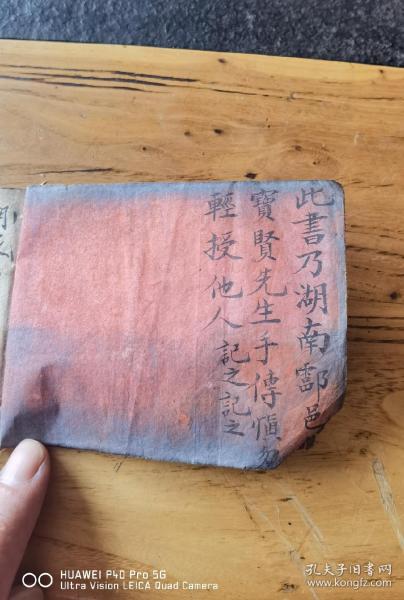 此書乃湖南酃邑
寶賢先生手傳慎勿
輕授他人記之記之
HUAWEI P40 Pro 5G
Ultra Vision LEICA Quad Camera
孔夫子旧书网
www.kongfz.com